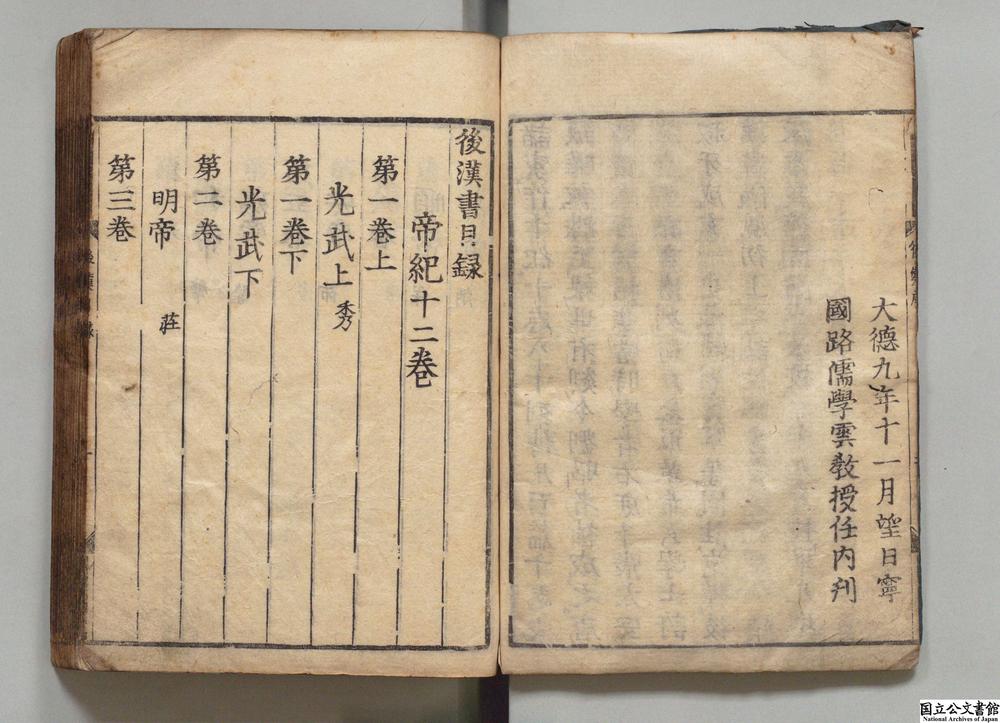 大德九年十一月望日寧
國路儒學雲教授任内刋
後漢書目録
帝紀十二卷
第一卷上
光武上 秀
第一卷下
光武下
第二卷
明帝 莊
第三卷
国立公文書館
National Archives of Japan